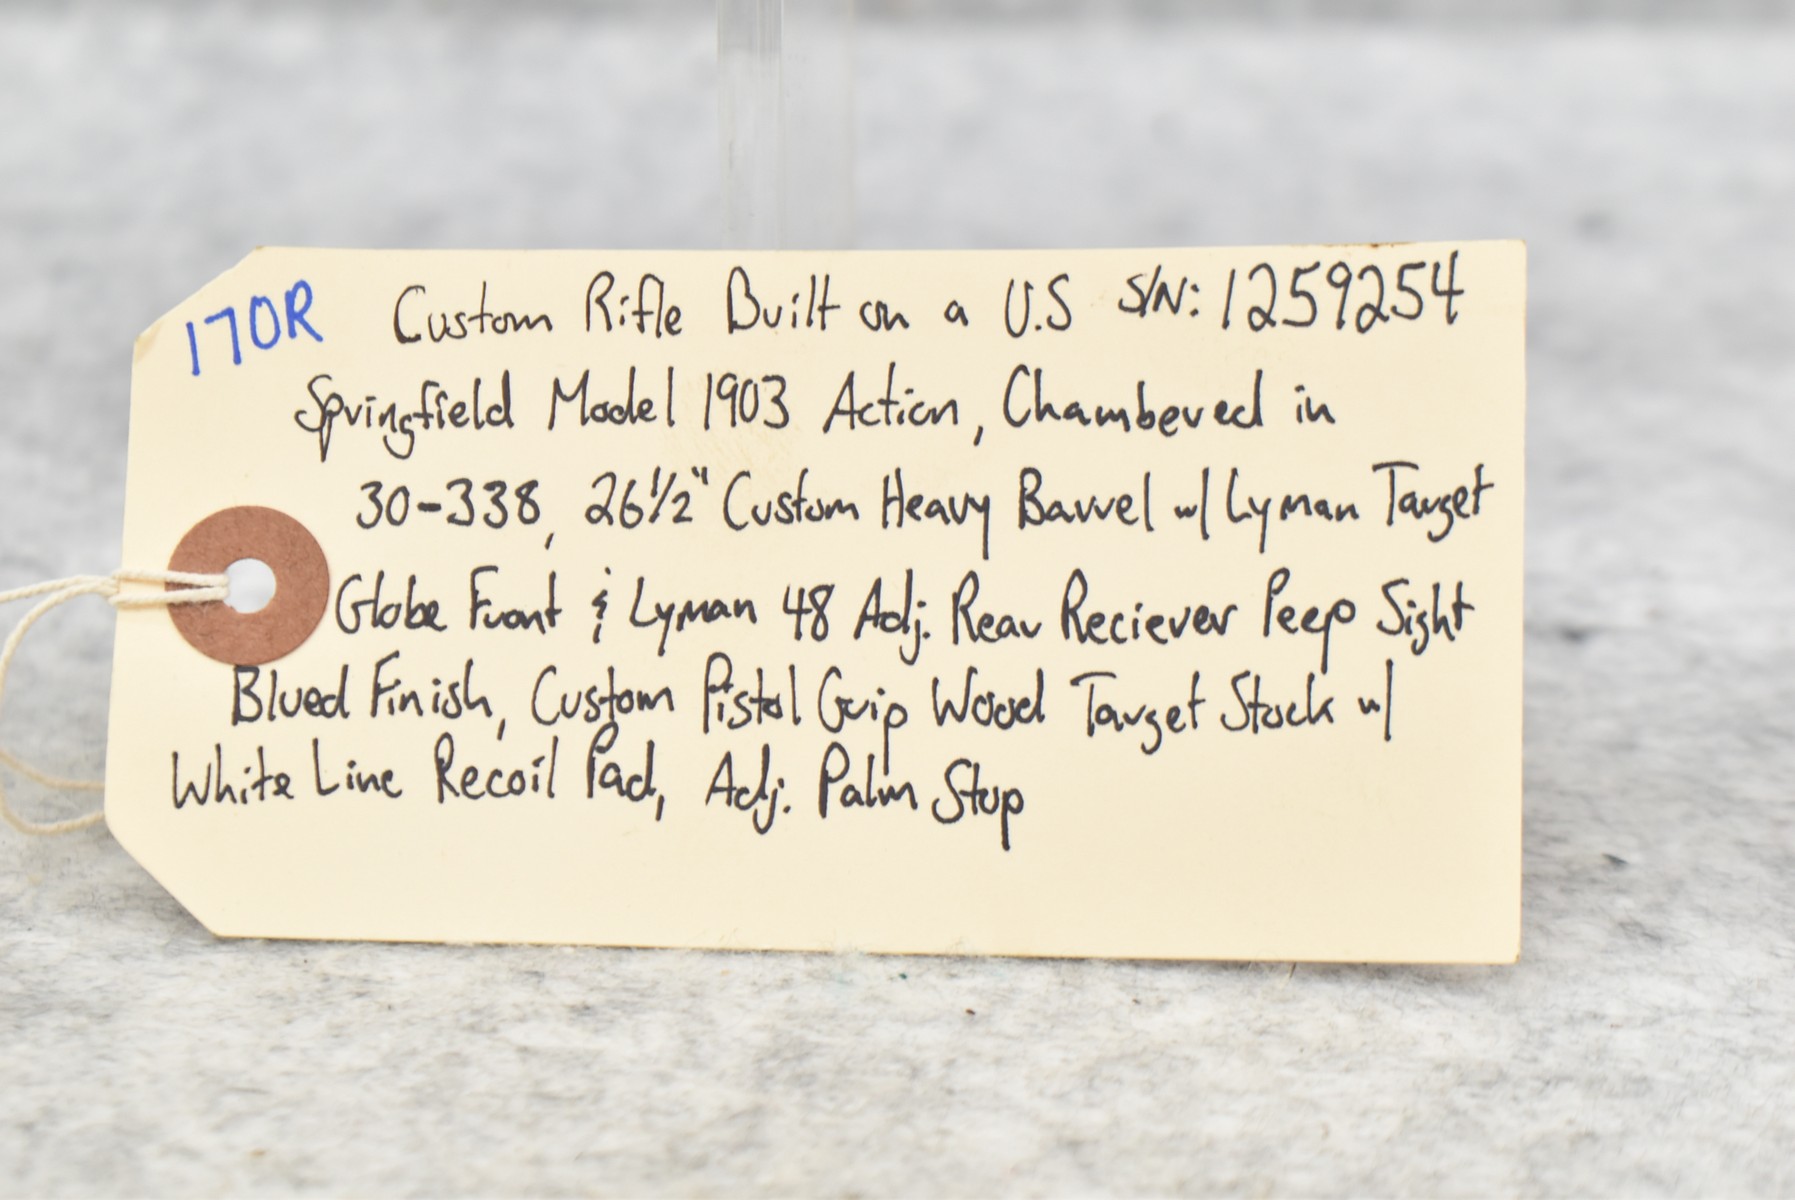 170R Custom Rifle Built on a U.S S/N: 1259254
Springfield Model 1903 Action, Chambered in
30-338, 26 1/2" Custom Heavy Barrel w/ Lyman Target
Globe Front & Lyman 48 Adj. Rear Reciever Peep Sight
Blued Finish, Custom Pistol Grip Wood Target Stock w/
White Line Recoil Pad, Adj. Palm Stop